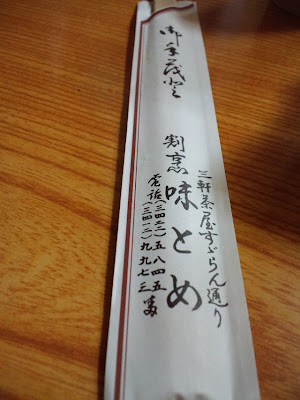 御手茂登
三軒茶屋すゞらん通り
割烹 味とめ
電話(三四二二)五八四五
(三四一二)九九七三番